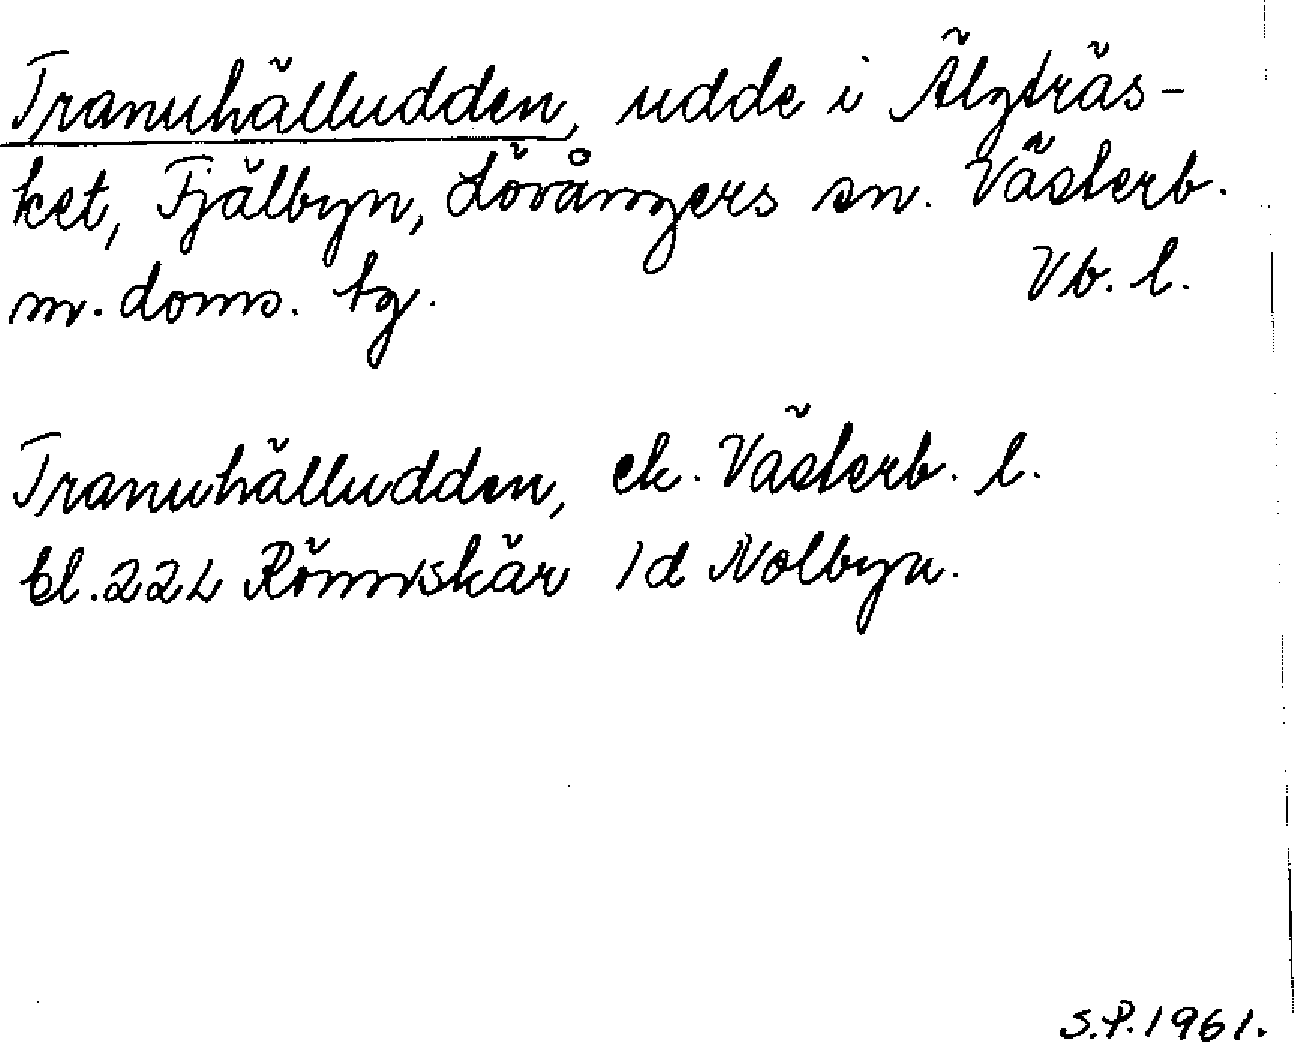 Tranuhälludden, udde i Älgträs-
ket, Fjälbyn, Lövångers sn. Västerb.
m. doms. tg. Vb. l.
Tranuhälludden, ek. Västerb. l.
bl. 22L Rönnskär 1d Nolbyn.
S.P. 1961.